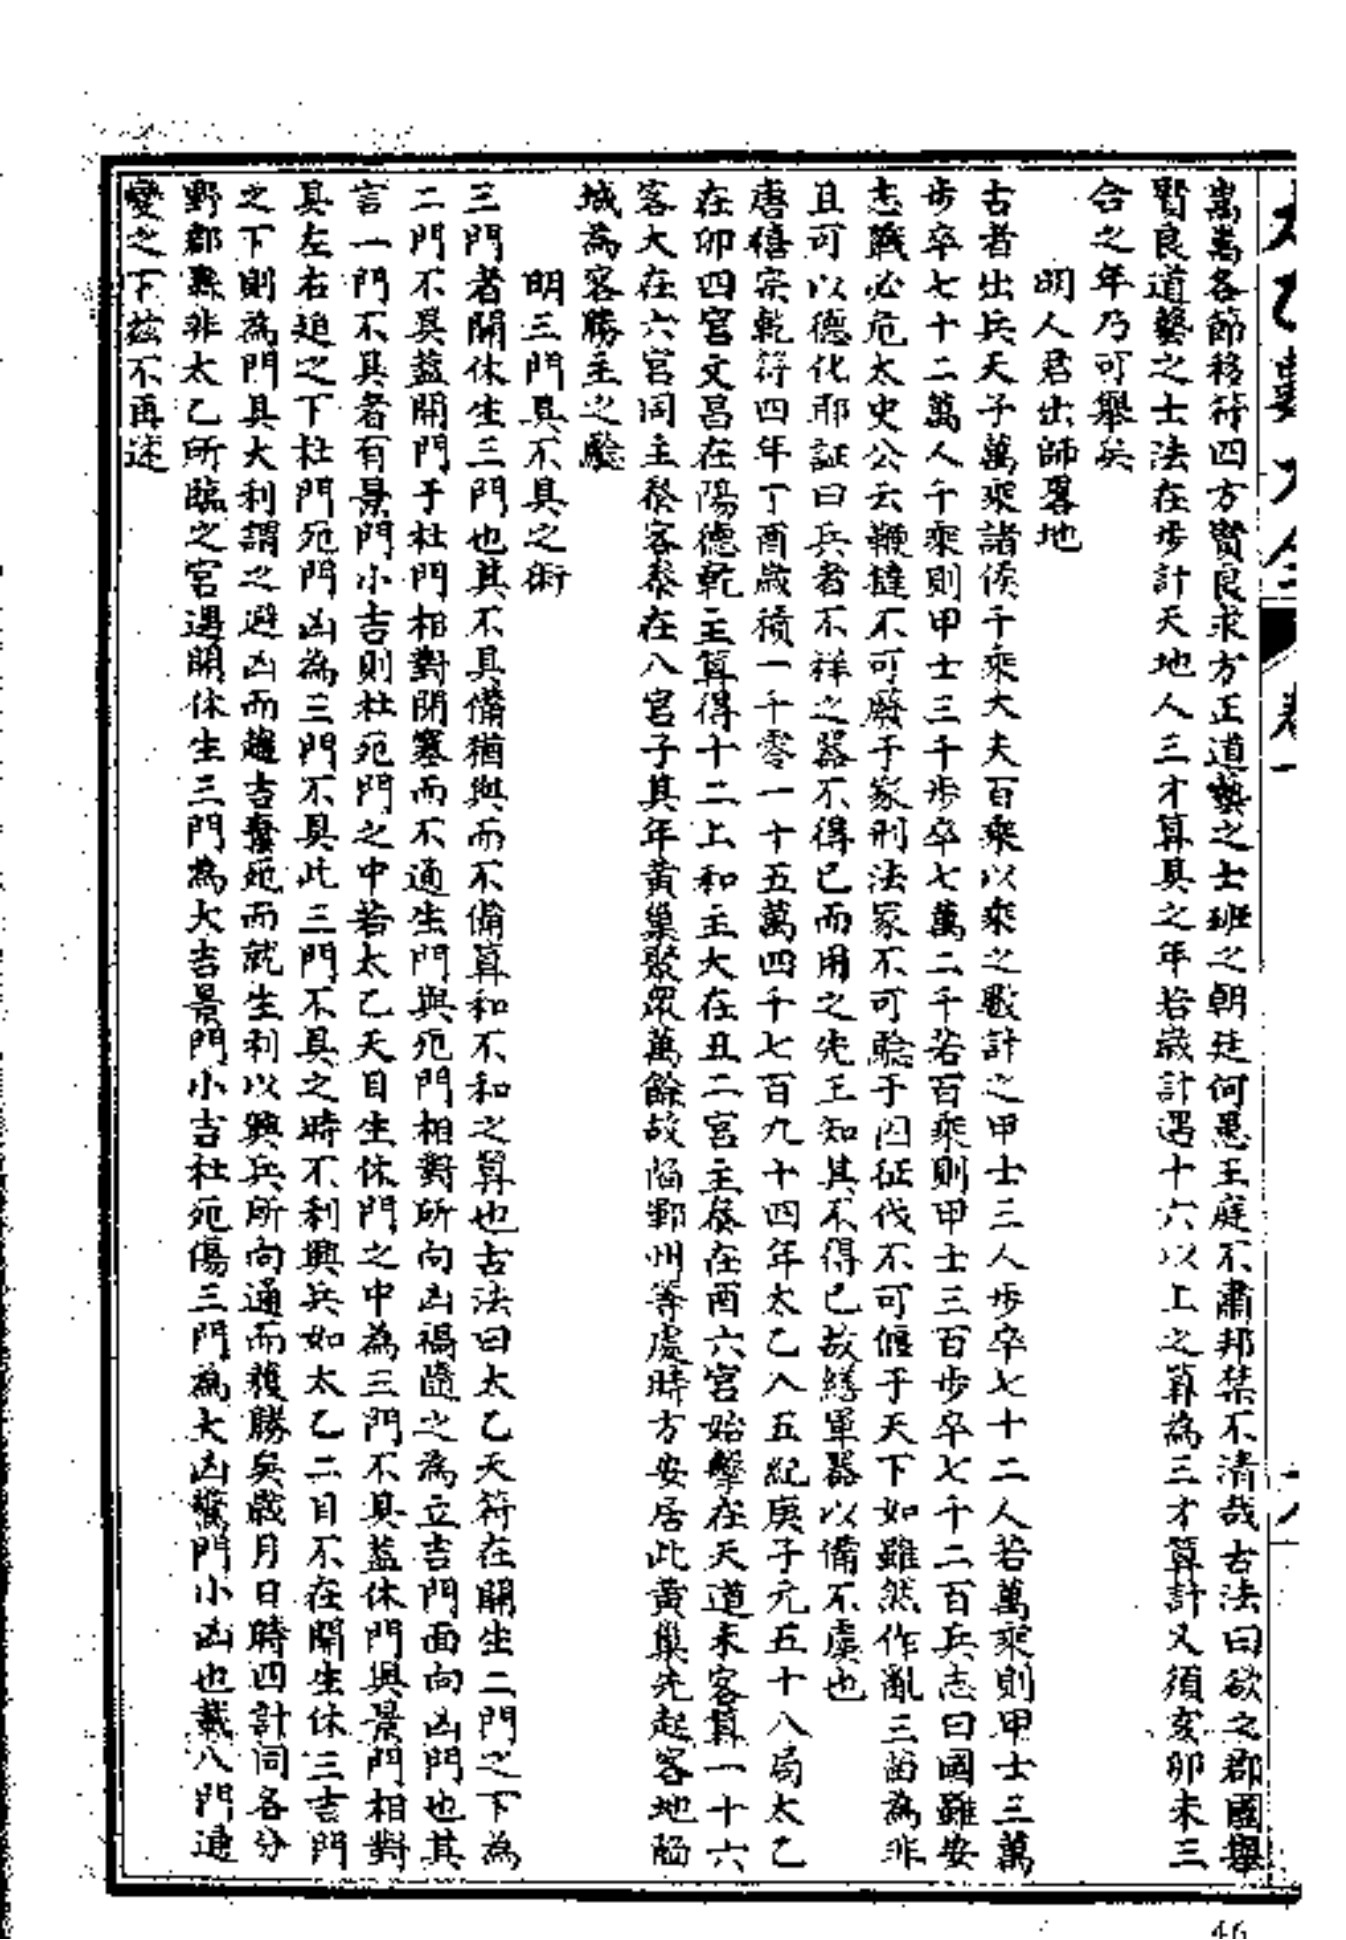 嵩嵩各節移符四方賢良求方正道藝之士班之朝廷何愚王庭不肅邦禁不清哉古法曰欲之郡國舉
賢良道藝之士法在步計天地人三才算具之年若歲計遇十六以上之算為三才算計又須亥卯未三
合之年乃可舉矣
明人君出師畧地
古者出兵天子萬乘諸侯千乘大夫百乘以乘之數計之甲士三人步卒七十二人若萬乘則甲士三萬
步卒七十二萬人千乘則甲士三千步卒七萬二千若百乘則甲士三百步卒七千二百兵志曰國雖安
志戰必危太史公云鞭撻不可廢于家刑法家不可驗于四征伐不可偃于天下如雖然作亂三苗為非
且可以德化耶証曰兵者不祥之器不得已而用之先王知其不得已故繕軍器以備不虞也
唐僖宗乾符四年丁酉歲積一千零一十五萬四千七百九十四年太乙入五紀庚子元五十八局太乙
在卯四宮文昌在陽德乾主算得十二上和主大在丑二宮主叅在酉六宮始擊在天道未客算一十六
客大在六宮同主叅客叅在八宮子其年黃巢聚眾萬餘故陷鄆州等處時方安居此黃巢先起客地陷
城為客勝主之驗
明三門具不具之術
三門者開休生三門也其不具備猶與而不備算和不和之算也古法曰太乙天符在開生二門之下為
二門不具蓋開門于杜門相對閉塞而不通生門與死門相對所向凶禍隨之為立吉門面向凶門也其
言一門不具者有景門小吉則杜死門之中若太乙天目生休門之中為三門不具蓋休門與景門相對
具左右迫之下杜門死門凶為三門不具此三門不具之時不利興兵如太乙二目不在開生休三吉門
之下則為門具大利謂之避凶而趨吉棄死而就生利以興兵所向通而獲勝矣歲月日時四計同各分
野郡縣非太乙所臨之宮遇開休生三門為大吉景門小吉杜死傷三門為大凶驚門小凶也載八門通
變之下茲不再述
卷一
46